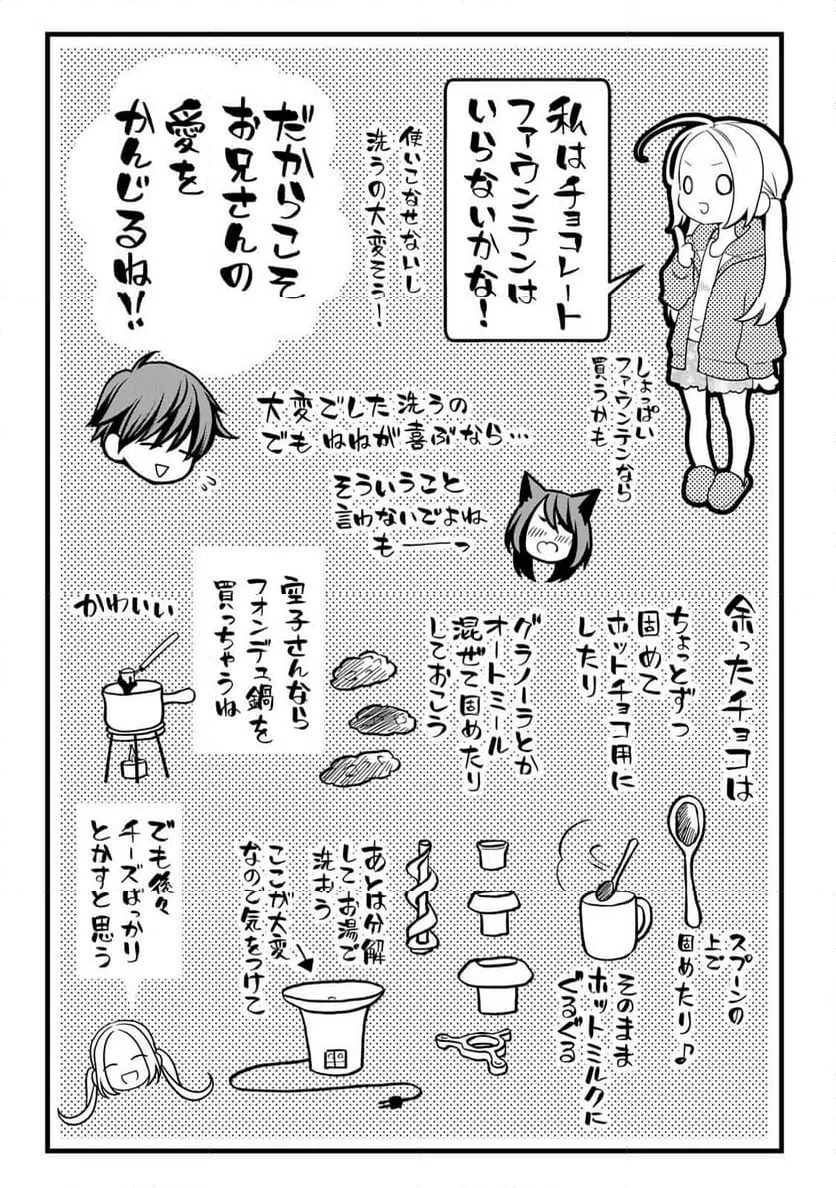 私はチョコレート
ファウンテンは
いらないかな!
使いこなせないし
洗うの大変そう!
だからこそ
お兄さんの
愛を
かんじるね!!
しょっぱい
ファウンテンなら
買うかも
大変でした洗うの
でもねねが喜ぶなら…
そういうこと
言わないでよね
もーーっ
余ったチョコは
ちょっとずつ
固めて
ホットチョコ用に
したり
グラノーラとか
オートミール
混ぜて固めたり
しておこう
空子さんなら
フォンデュ鍋を
買っちゃうね
かわいい
スプーンの
上で
固めたり♪
そのまま
ホットミルクに
ぐるぐる
あとは分解
してお湯で
洗おう
ここが大変
なので気をつけて
でも後々
チーズばっかり
とかすと思う